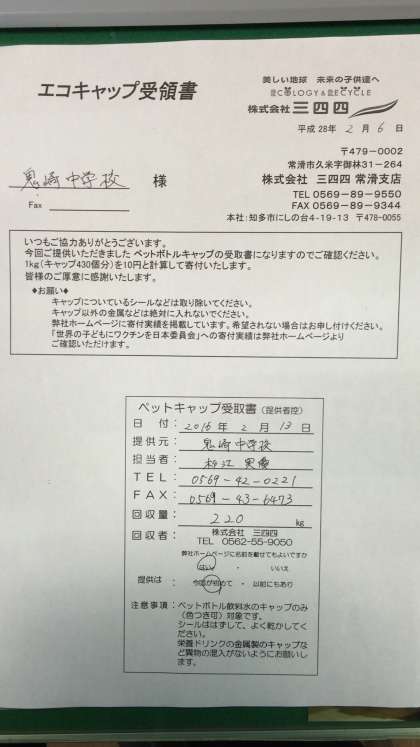 エコキャップ受領書
美しい地球 未来の子供達へ
ECOLOGY & RECYCLE
株式会社 三四四
平成 28年 2月 6日
〒479-0002
常滑市久米字御林31-264
株式会社 三四四 常滑支店
TEL 0569-89-9550
FAX 0569-89-9344
本社:知多市にしの台4-19-13 〒478-0055
鬼崎中学校 様
Fax
いつもご協力ありがとうございます。
今回ご提供いただきました ペットボトルキャップの受取書になりますのでご確認ください。
1kg(キャップ430個分)を10円と計算して寄付いたします。
皆様のご厚意に感謝いたします。
◆お願い◆
キャップについているシールなどは取り除いてください。
キャップ以外の金属などは絶対に入れないでください。
弊社ホームページに寄付実績を掲載しています。希望されない場合はお申し付けください。
「世界の子どもにワクチンを日本委員会」への寄付実績は弊社ホームページより
ご確認いただけます。
ペットキャップ受取書(提供者控)
日付: 2016年 2月 13日
提供元: 鬼崎中学校
担当者:
TEL: 0569-42-0221
FAX: 0569-43-6473
回収量: 220 kg
回収者: 株式会社 三四四
TEL 0562-55-9050
弊社ホームページに名前を載せてもよいですか
はい ・ いいえ
提供は: 今回が初めて ・ 以前にもあり
注意事項:ペットボトル飲料水のキャップのみ
(色つき可)対象です。
シールははずして、よく乾かしてく
ださい。
栄養ドリンクの金属製のキャップな
ど異物の混入がないようにお願いし
ます。